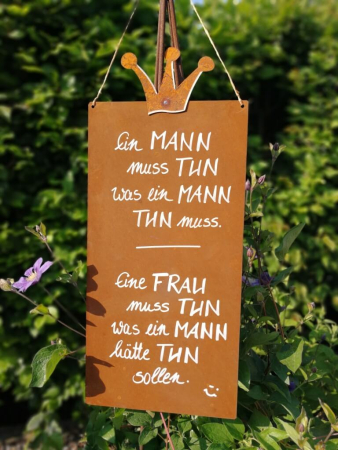 Ein MANN
muss TUN
was ein MANN
TUN muss.
Eine FRAU
muss TUN
was ein MANN
hätte TUN
sollen.